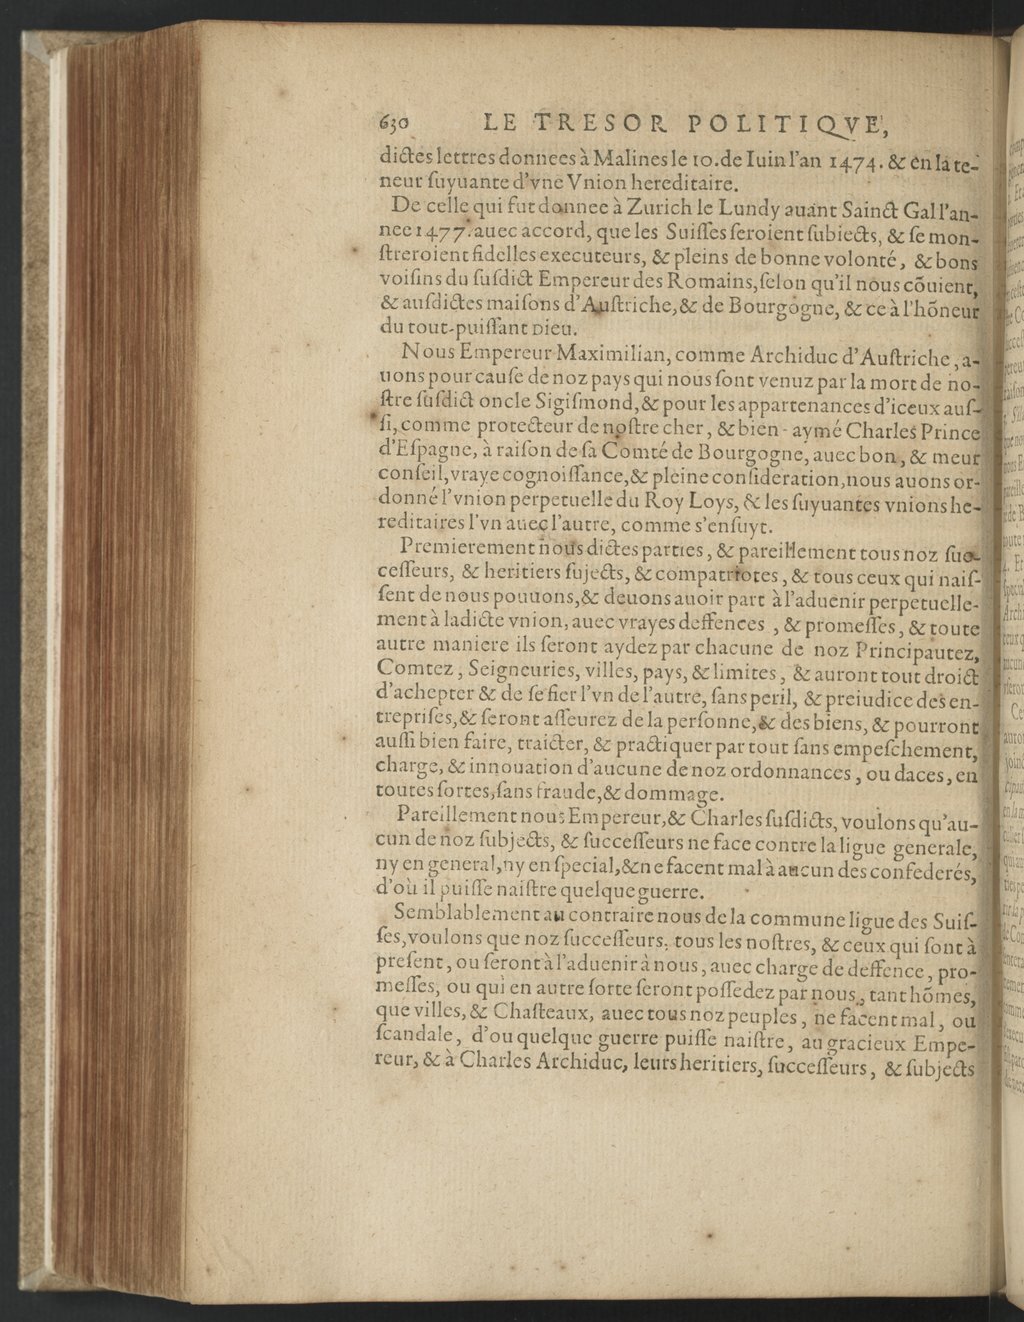 630 LE TRESOR POLITIQVE,
dictes lettres donnees à Malines le 10. de Iuin l'an 1474. & en la te-
neur ſuyuante d'vne Vnion hereditaire.
De celle qui fut donnee à Zurich le Lundy auant Sainct Gal l'an-
nee 1477. auec accord, que les Suiſſes ſeroient ſubiects, & ſe mon-
ſtreroient fidelles executeurs, & pleins de bonne volonté, & bons
voiſins du ſuſdict Empereur des Romains, ſelon qu'il nous cõuient,
& auſdictes maiſons d'Auſtriche, & de Bourgogne, & ce à l'hõneur
du tout-puiſſant Dieu.
Nous Empereur Maximilian, comme Archiduc d'Auſtriche, a-
uons pour cauſe de noz pays qui nous ſont venuz par la mort de no-
ſtre ſuſdict oncle Sigiſmond, & pour les appartenances d'iceux auſ-
ſi, comme protecteur de noſtre cher, & bien-aymé Charles Prince
d'Eſpagne, à raiſon de ſa Comté de Bourgogne, auec bon, & meur
conſeil, vraye cognoiſſance, & pleine conſideration, nous auons or-
donné l'vnion perpetuelle du Roy Loys, & les ſuyuantes vnions he-
reditaires l'vn auec l'autre, comme s'enſuyt.
Premierement nous dictes parties, & pareillement tous noz ſuc-
ceſſeurs, & heritiers ſujects, & compatriotes, & tous ceux qui naiſ-
ſent de nous pouuons, & deuons auoir part à l'aduenir perpetuelle-
ment à ladicte vnion, auec vrayes deffences, & promeſſes, & toute
autre maniere ils ſeront aydez par chacune de noz Principautez,
Comtez, Seigneuries, villes, pays, & limites, & auront tout droict
d'achepter & de ſe fier l'vn de l'autre, ſans peril, & preiudice des en-
trepriſes, & ſeront aſſeurez de la perſonne, & des biens, & pourront
auſſi bien faire, traicter, & practiquer par tout ſans empeſchement,
charge, & innouation d'aucune de noz ordonnances, ou daces, en
toutes ſortes, ſans fraude, & dommage.
Pareillement nous Empereur, & Charles ſuſdicts, voulons qu'au-
cun de noz ſubjects, & ſucceſſeurs ne face contre la ligue generale,
ny en general, ny en ſpecial, & ne facent mal à aucun des confederés,
d'où il puiſſe naiſtre quelque guerre.
Semblablement au contraire nous de la commune ligue des Suiſ-
ſes, voulons que noz ſucceſſeurs, tous les noſtres, & ceux qui ſont à
preſent, ou ſeront à l'aduenir à nous, auec charge de deffence, pro-
meſſes, ou qui en autre ſorte ſeront poſſedez par nous, tant hõmes,
que villes, & Chaſteaux, auec tous noz peuples, ne facent mal, ou
ſcandale, d'ou quelque guerre puiſſe naiſtre, au gracieux Empe-
reur, & à Charles Archiduc, leurs heritiers, ſucceſſeurs, & ſubjects